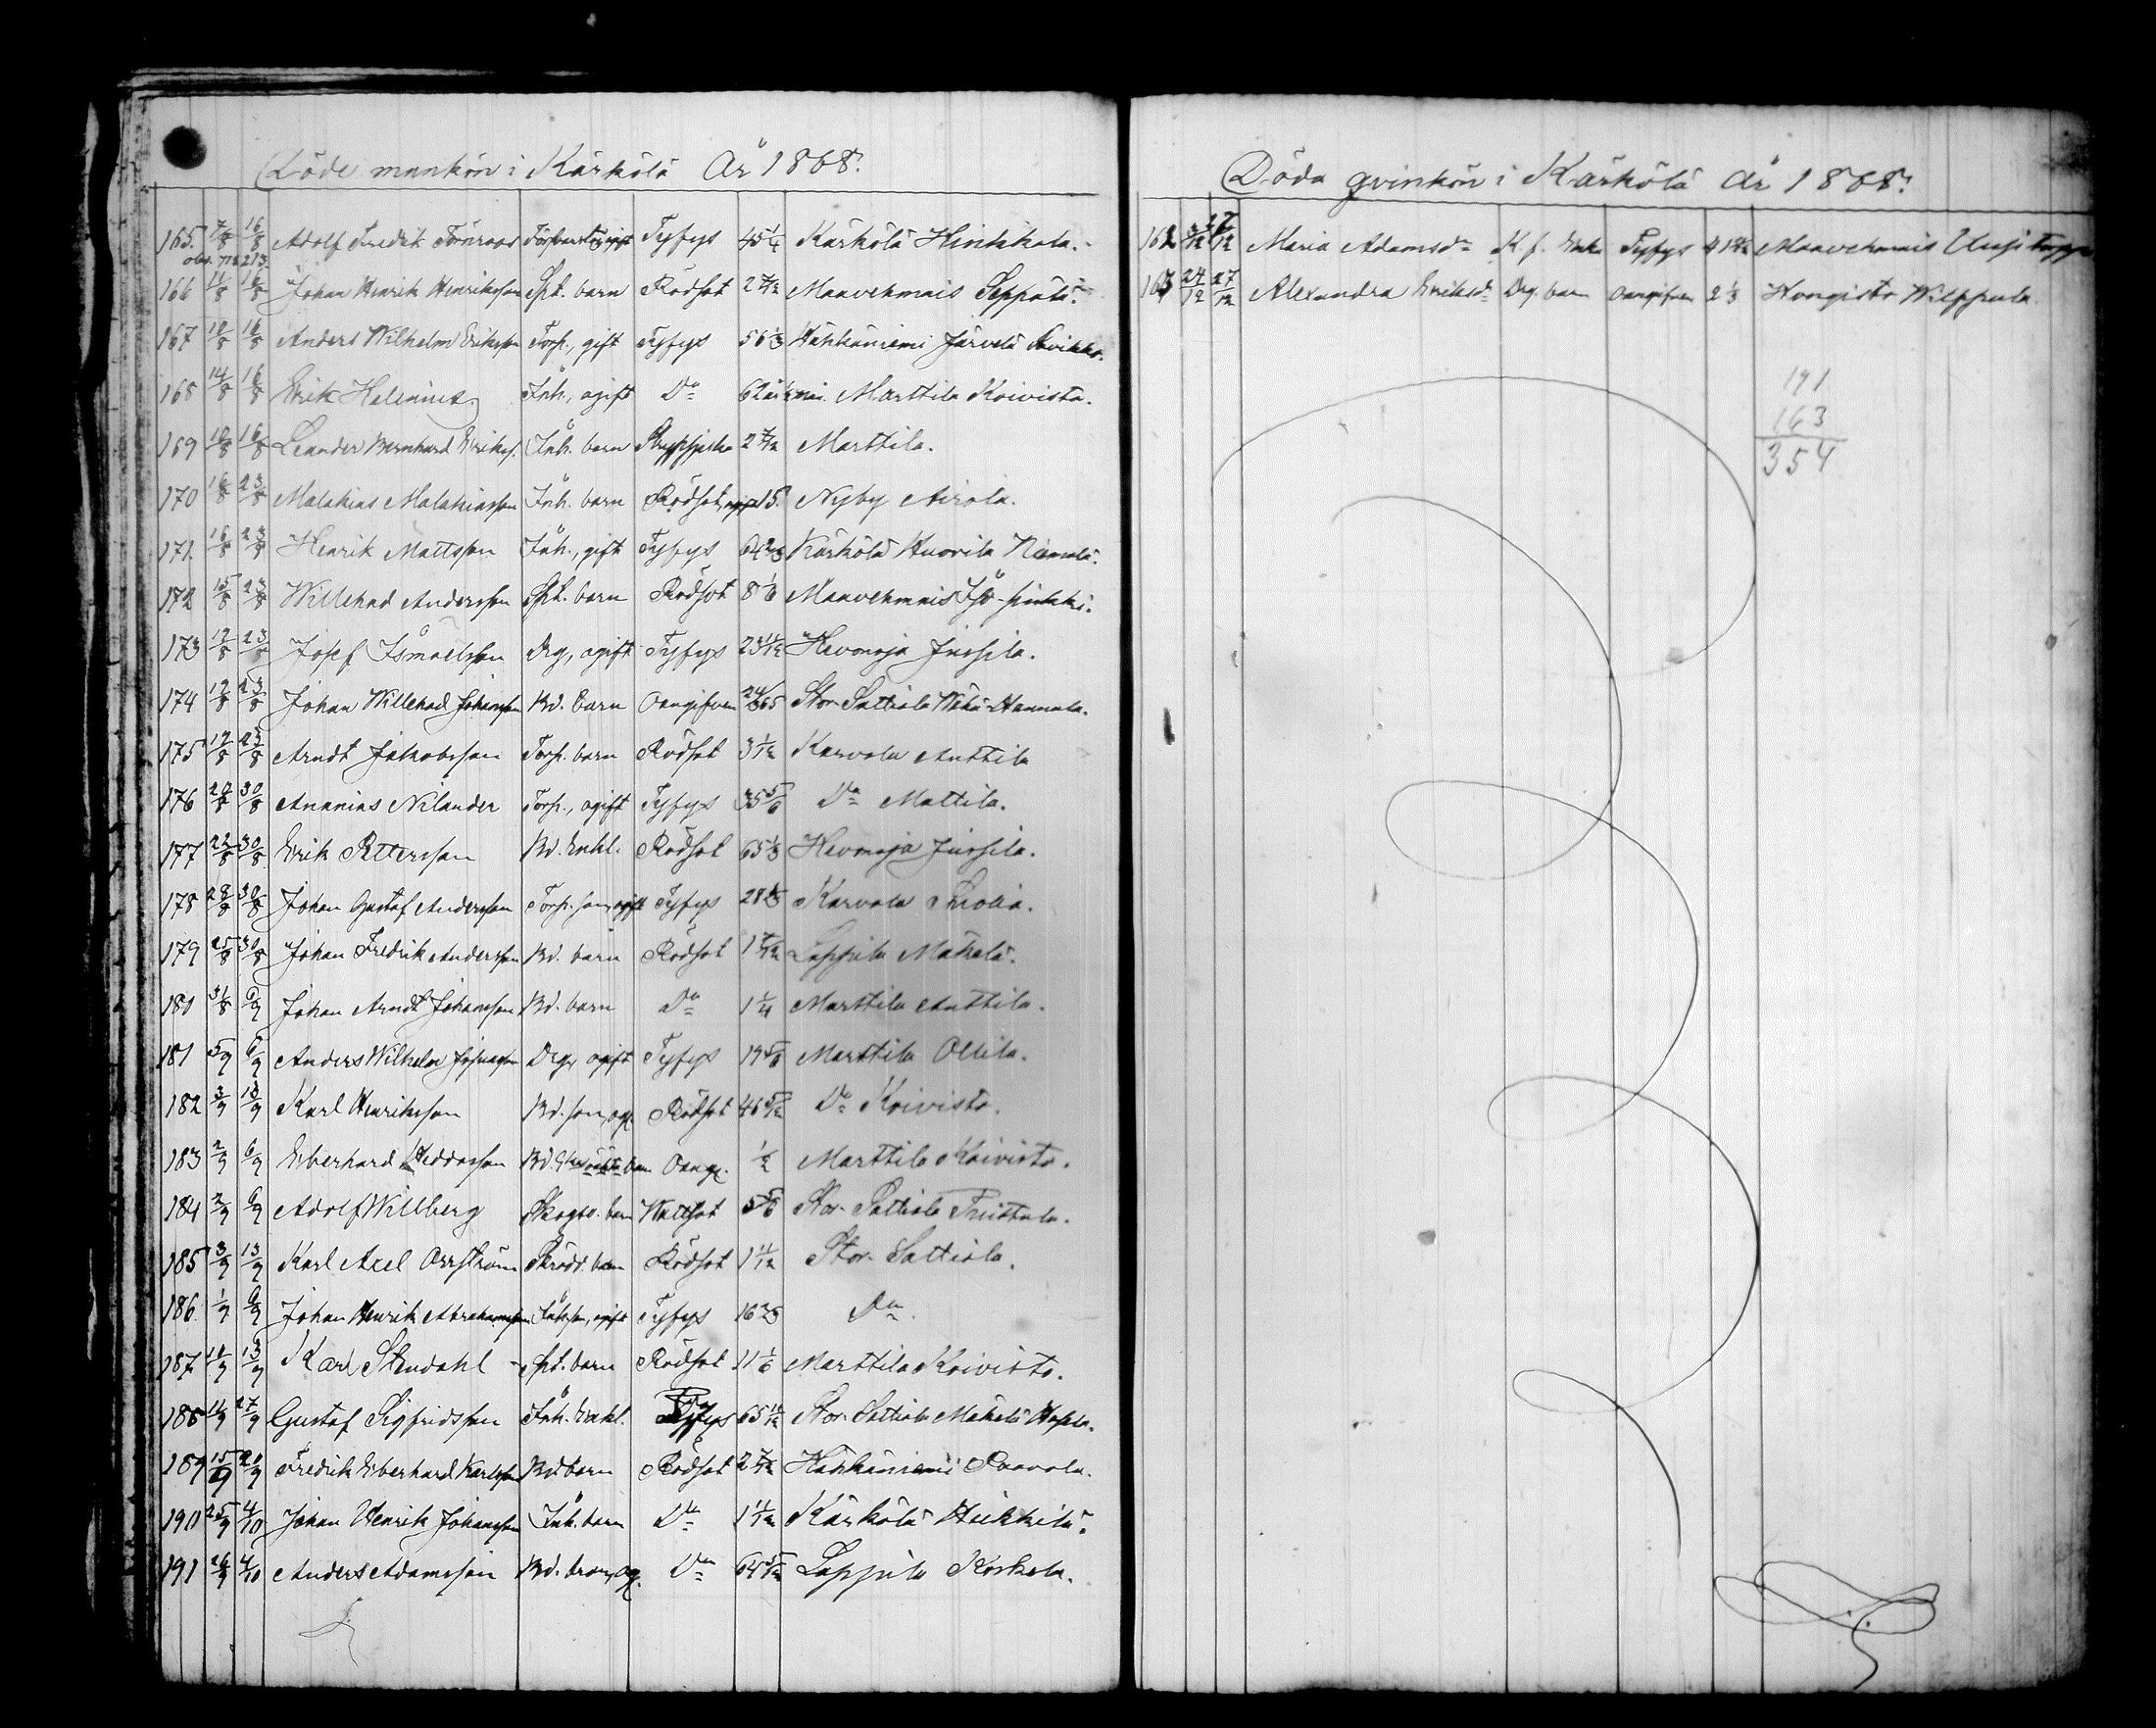 Döde mankön i Kärkölä År 1868.
165. 7/8 16/8 Adolf Fredrik Törnroos gift Tyfys 45 1/4 Kärkölä Hinkkala.
obs. 213.
166 11/8 16/8 Johan Henrik Henriksson Spt. barn Rödsot 2 7/12 Maavehmais Seppälä.
167 12/8 16/8 Anders Wilhelm Eriksson Torp., gift Tyfys 56 1/3 Hähkäniemi Järvelä
168 14/8 16/8 Erik Helenius Inh., ogift Do Marttila Koivisto.
169 10/8 16/8 Leander Bernhard Eriks. Inh. barn 2 7/12 Marttila.
170 16/8 23/8 Malakias Malakiasson Inh. barn Rödsot 15. Nyby Airola.
171. 16/8 23/8 Henrik Mattsson Inh., gift Tyfys 64 2/3 Kärkölä Huovila
172 15/8 23/8 Willehad Andersson Spt. barn Rödsot 8 1/6 Maavehmais
173 19/8 23/8 Josef Ismaelsson Drg, ogift Tyfys 23 11/12 Hevonoja Jussila.
174 19/8 23/8 Johan Willehad Johansson Bd. barn Oangifven 24/365 Stor-Sattiala Wähä-Hannula.
175 19/8 23/8 Arndt Jakobsson Torp. barn Rödsot 3 1/12 Karvala Anttila
176 20/8 30/8 Ananias Nilander Torp., ogift Tyfys 35 5/6 Do Mattila.
177 22/8 30/8 Erik Pettersson Bd. Enkl. Rödsot 65 1/3 Hevonoja Jussila.
178 28/8 30/8 Johan Gustaf Andersson Torp. son, ogift Tyfys 28 Karvala
179 25/8 30/8 Johan Fredrik Andersson Bd. barn Rödsot 1 7/12 Lappila Mäkelä.
180 31/8 6/9 Johan Arndt Johansson Bd. barn Do 1 1/4 Marttila Anttila.
181 5/9 6/9 Anders Wilhelm Drg, ogift Tyfys 19 5/6 Marttila Ollila.
182 3/9 13/9 Karl Henriksson Bd. son, og. Rödsot 46 5/12 Do Koivisto.
183 2/9 6/9 Eberhard Heddasson Bd. oäkta barn Oang. 1/2 Marttila Koivisto.
184 2/9 6/9 Adolf Willberg Skogsv. barn Wattsot 5 5/6 Stor-Sattiala
185 3/9 13/9 Karl Axel Orrström Skrädd. barn Rödsot 1 11/12 Stor-Sattiala.
186. 1/9 6/9 Johan Henrik Abrahamsson Inh. son, ogift Tyfys 16 2/3 Do
187 11/9 13/9 Karl Stendahl Spt. barn Rödsot 11 1/6 Marttila Koivisto.
188 11/9 27/9 Gustaf Sigfridsson Inh. Enkl. Tyfys 65 11/12 Stor-Sattiala Mäkelä
189 15/9 20/9 Fredrik Eberhard Karlsson Bd. barn Rödsot 2 7/12 Hähkäniemi Paavola.
190 25/9 4/10 Johan Henrik Johansson Inh. barn Do 1 11/12 Kärkölä Heikkilä.
191 26/9 4/10 Anders Adamsson Bd. bror, og. Do 64 5/12 Lappila Koskela.
Döda qvinkön i Kärkölä år 1868.
162 27/12 Maria Adamsdr K. f. Enka Tyfys 41 Maavehmais Uusi
163 24/12 27/12 Alexandra Eriksdr Drg. barn Oangifven 2 1/3 Hongisto Wilppula
191
163
354